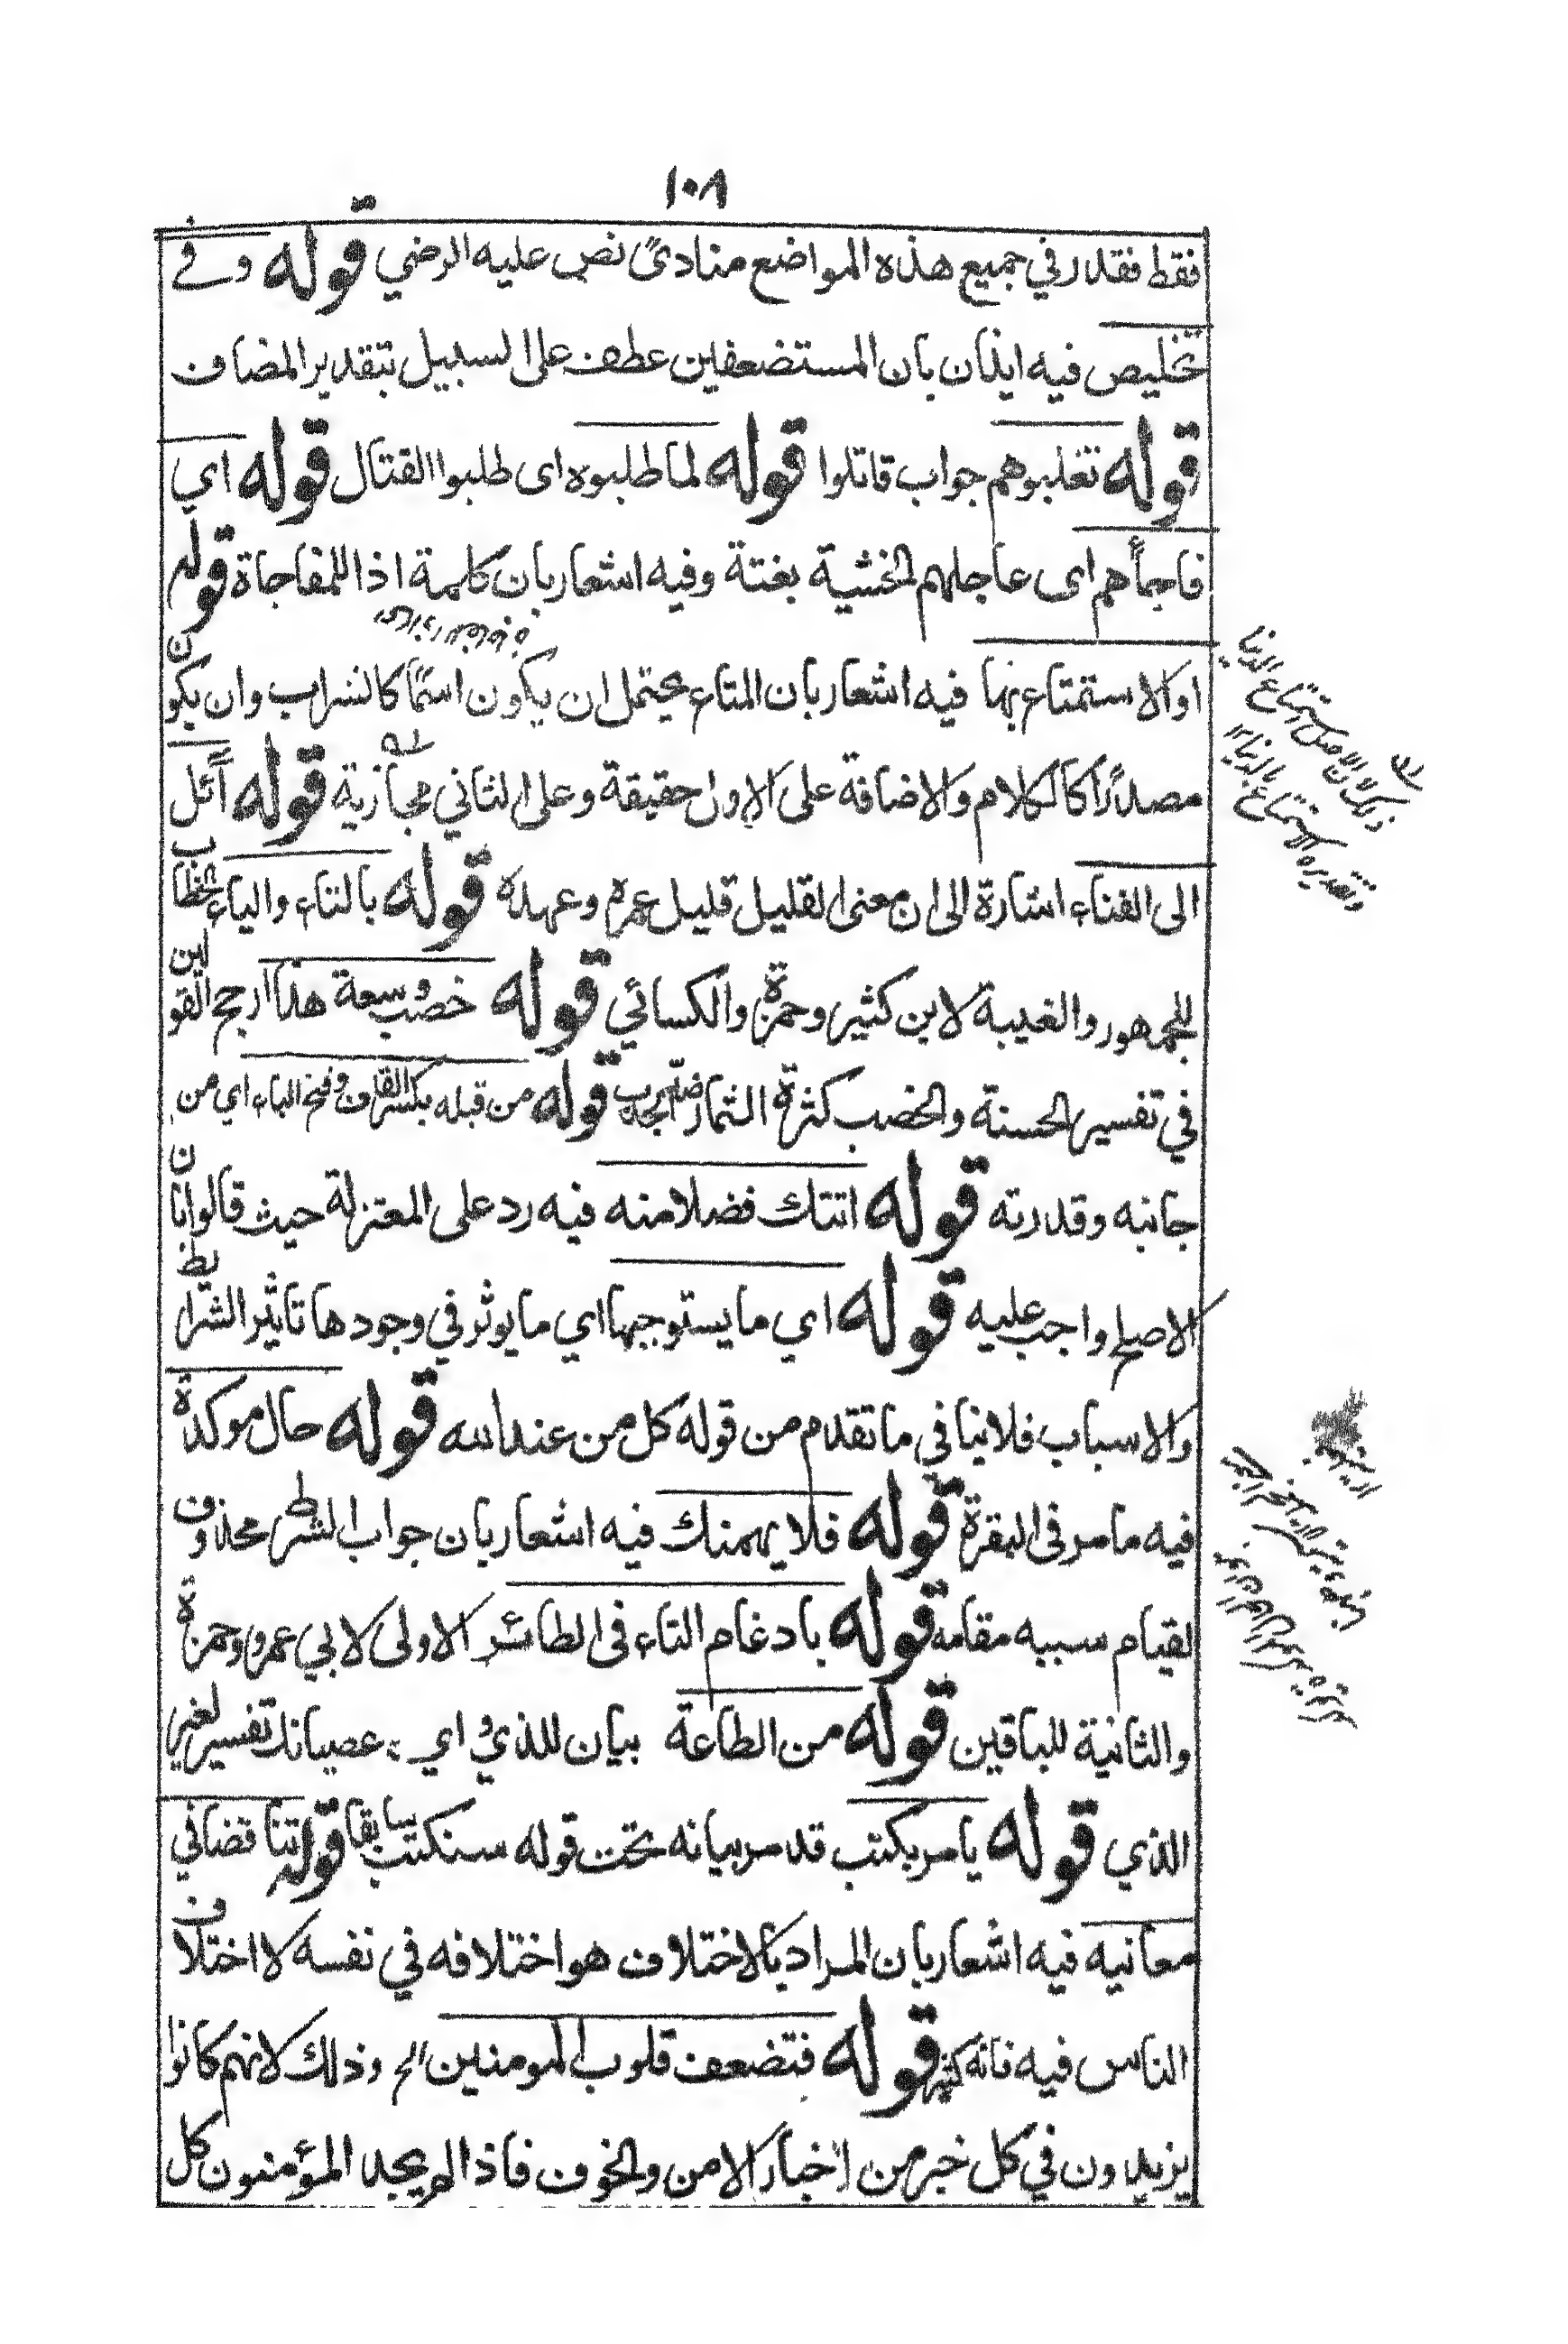 ١٠٨
فقط فقدر في جميع هذه المواضع منادىً نص عليه الرضي قوله وفي
تخليص فيه ايذان بان المستضعفين عطف على السبيل بتقدير المضاف
قوله تغلبوهم جواب قاتلوا قوله لما طلبوه اى طلبوا القتال قوله اي
فاجأهم اى عاجلهم الخشية بغتة وفيه اشعار بان كلمة اذا للمفاجاة قوله
او الاستمتاع بها فيه اشعار بان المتاع يحتمل ان يكون اسمًا كالشراب وان يكون
مصدرًا كالكلام والاضافة على الاول حقيقة وعلى الثاني مجازية قوله آئل
الى الفناء اشارة الى ان معنى القليل قليل عمره وعهده قوله بالتاء والياء الخطاب
للجمهور والغيبة لابن كثير وحمزة والكسائي قوله خصب وسعة هذا ارجح القولين
في تفسير الحسنة والخصب كثرة الثمار ضد الجدب قوله من قبله بكسر القاف وفتح الباء اي من
جانبه وقدرته قوله اتتك فضلا منه فيه رد على المعتزلة حيث قالوا ان
الاصلح واجب عليه قوله اي ما يستوجبها اي ما يوثر في وجودها تاثير الشرايط
والاسباب فلا ينافي ما تقدم من قوله كل من عند الله قوله حال موكدة
فيه ما مر فى البقرة قوله فلا يهمنك فيه اشعار بان جواب الشرط محذوف
لقيام سببه مقامه قوله بادغام التاء فى الطاء الاولى لابي عمرو وحمزة
والثانية للباقين قوله من الطاعة بيان للذي و اي عصيانك تفسير لغير
الذي قوله يامر بكتب قد مر بيانه تحت قوله سنكتب سابقا قوله تناقضا في
معانيه فيه اشعار بان المراد بالاختلاف هو اختلافه في نفسه لا اختلاف
الناس فيه فانه كثير قوله فتضعف قلوب المومنين الخ وذلك لانهم كانوا
يزيدون في كل خبر من اخبار الامن والخوف فاذا لم يجد المؤمنون كل